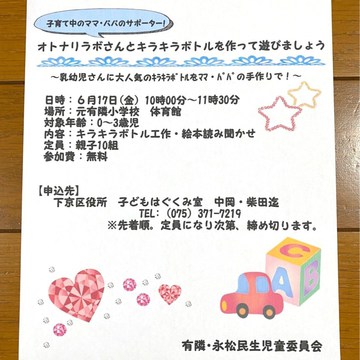 子育て中のママ・パパのサポーター!
オトナリラボさんとキラキラボトルを作って遊びましょう
～乳幼児さんに大人気のｷﾗｷﾗﾎﾞﾄﾙをママ・ﾊﾟﾊﾟの手作りで！～
日時：６月17日(金) 10時00分～11時30分
場所：元有隣小学校　体育館
対象年齢：0～3歳児
内容：キラキラボトル工作・絵本読み聞かせ
定員：親子10組
参加費：無料
【申込先】
下京区役所　子どもはぐくみ室　中岡・柴田迄
TEL: (075) 371-7219
※先着順。定員になり次第、締め切ります。
C
A
B
有隣・永松民生児童委員会